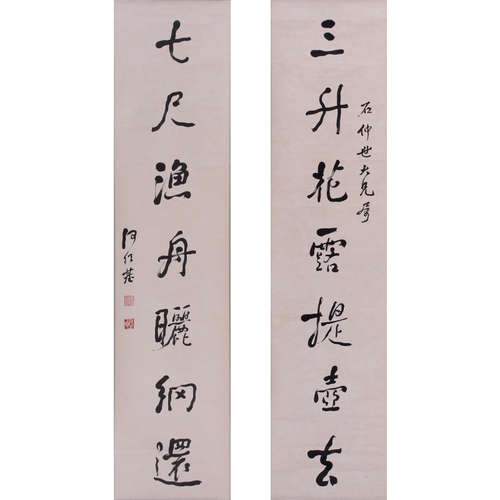 三升花露提壺去
石仲世大兄屬
七尺漁舟曬網還
何紹基